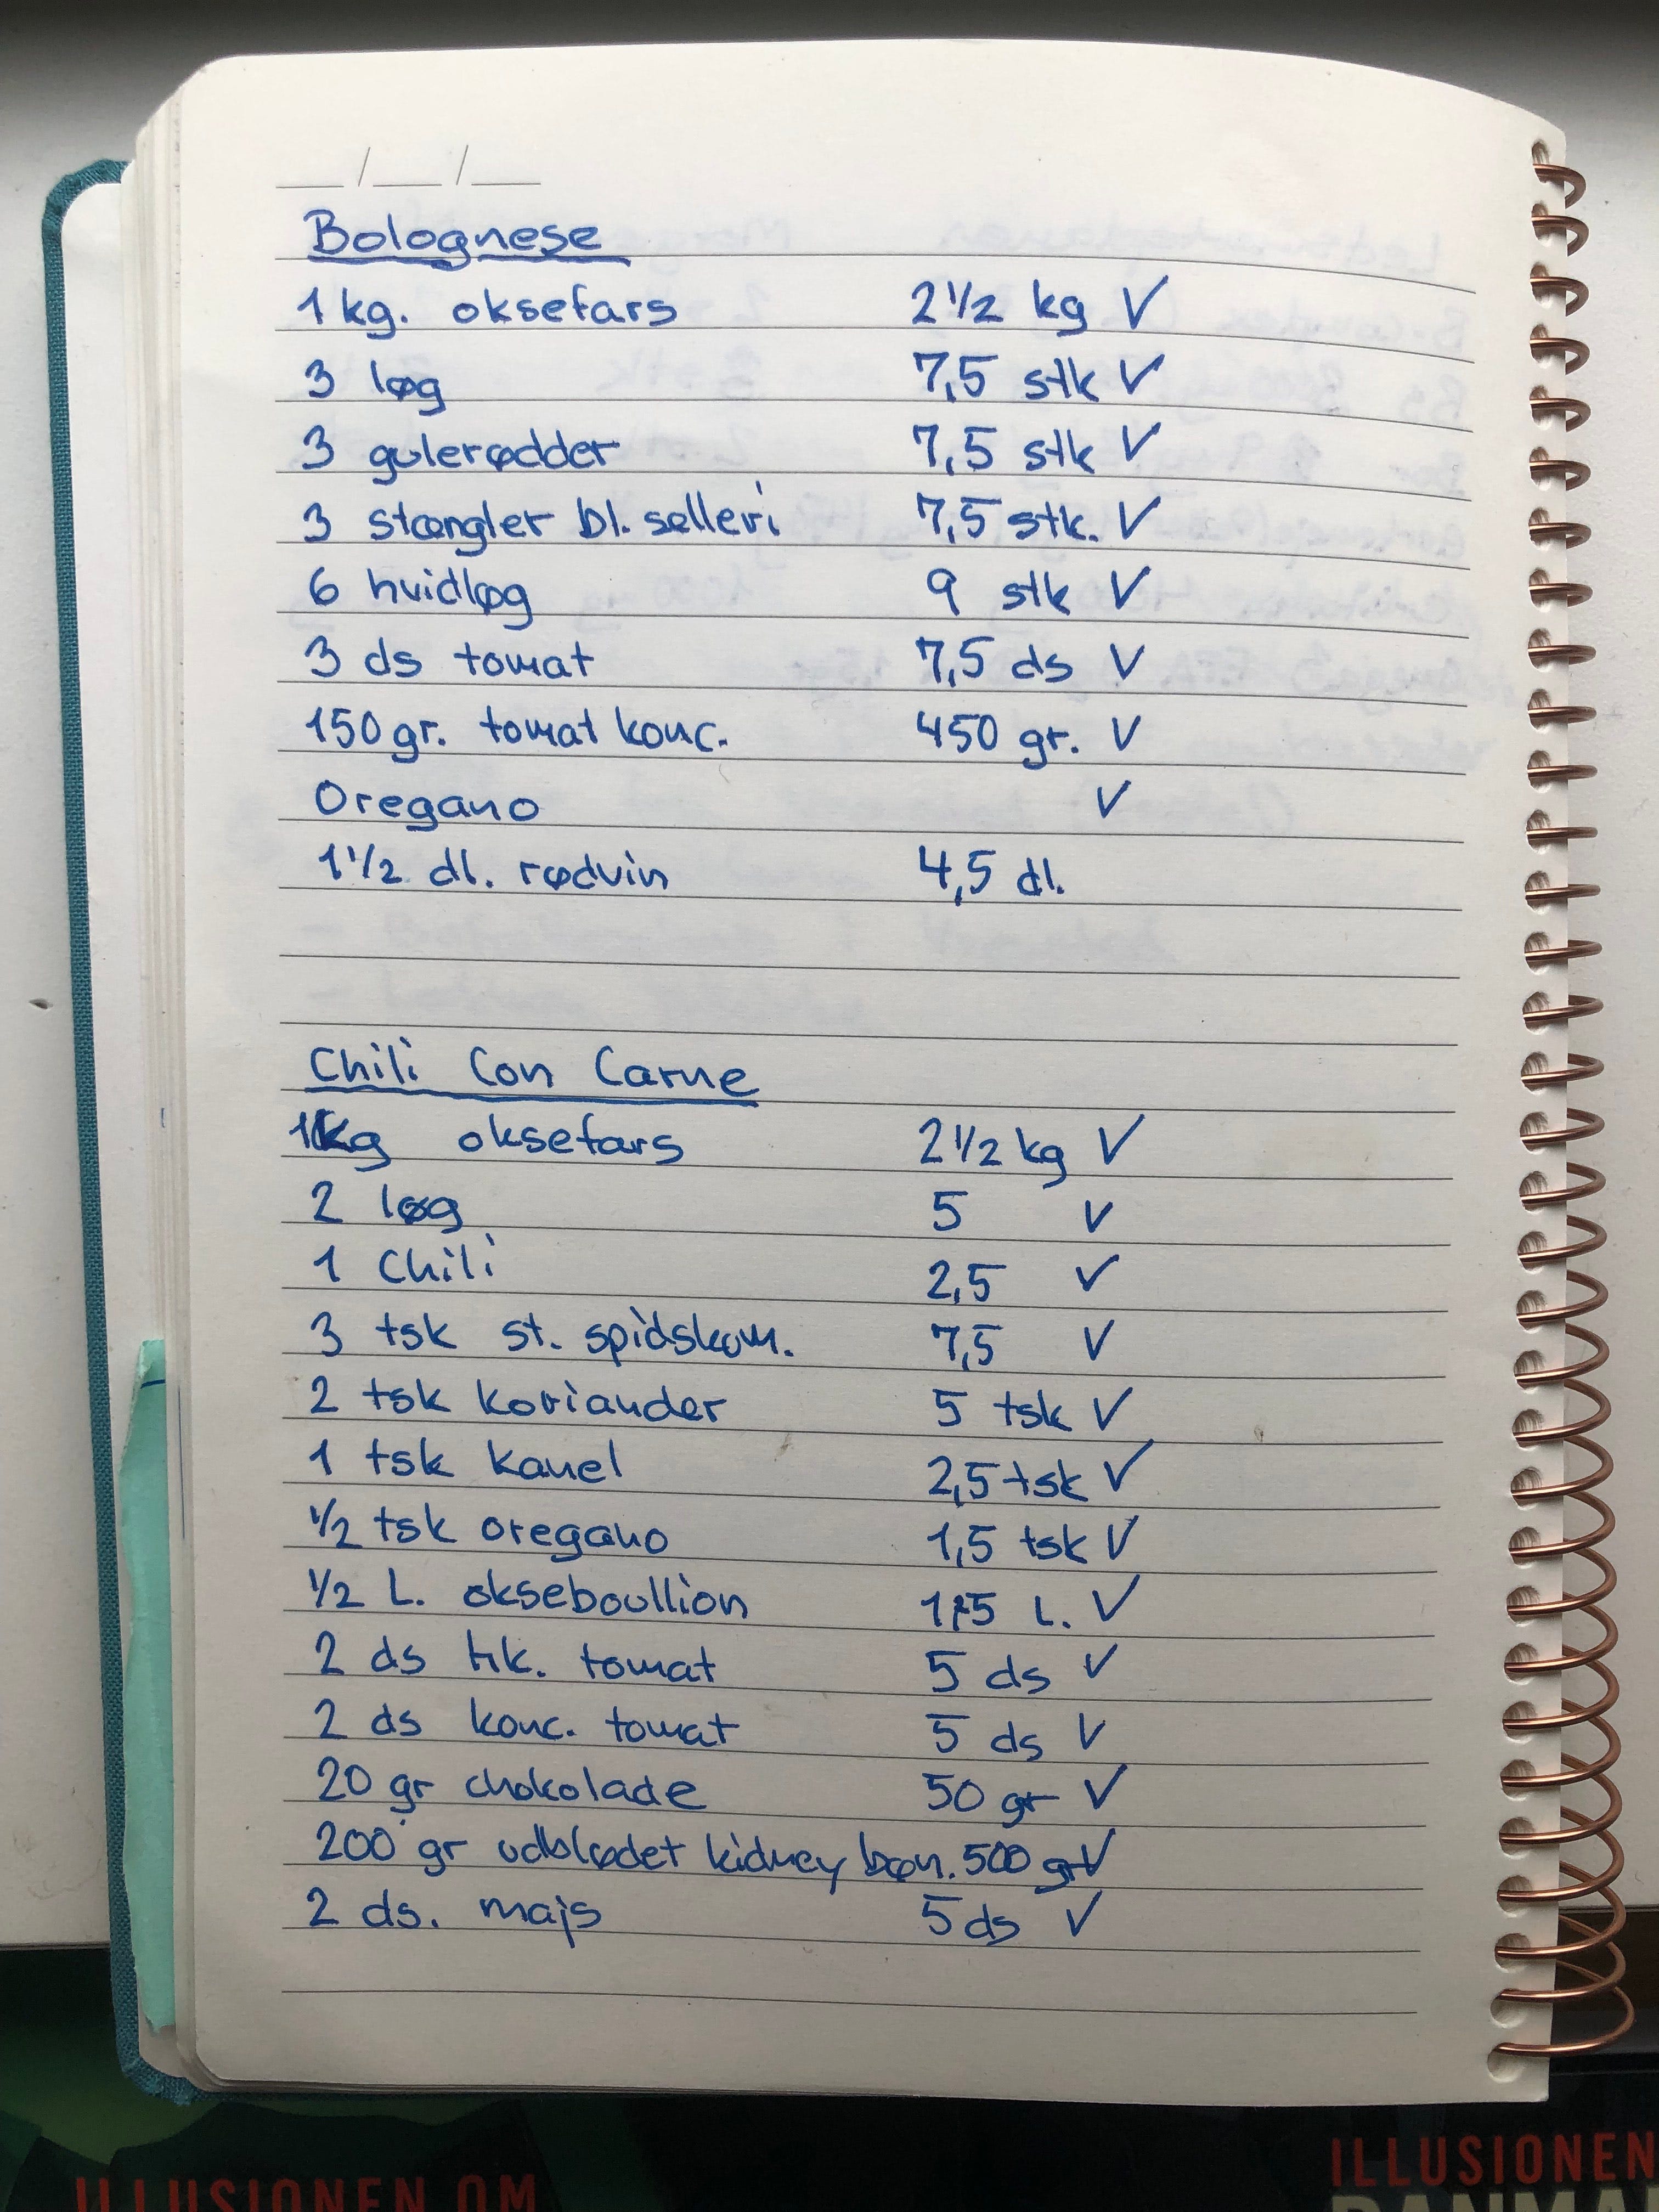 Bolognese
1 kg. oksefars 2 1/2 kg ✓
3 løg 7,5 stk ✓
3 gulerødder 7,5 stk ✓
3 stængler bl. selleri 7,5 stk. ✓
6 hvidløg 9 stk ✓
3 ds tomat 7,5 ds ✓
150 gr. tomat konc. 450 gr. ✓
Oregano ✓
1 1/2 dl. rødvin 4,5 dl.
Chili Con Carne
1 kg oksefars 2 1/2 kg ✓
2 løg 5 ✓
1 Chili 2,5 ✓
3 tsk st. spidskom. 7,5 ✓
2 tsk koriander 5 tsk ✓
1 tsk kanel 2,5 tsk ✓
1/2 tsk oregano 1,5 tsk ✓
1/2 L. okseboullion 1,5 L. ✓
2 ds hk. tomat 5 ds ✓
2 ds konc. tomat 5 ds ✓
20 gr chokolade 50 gr ✓
200 gr udblødet kidney bøn. 500 gr ✓
2 ds. majs 5 ds ✓
ILLUSIONEN OM
ILLUSIONEN
DANMA